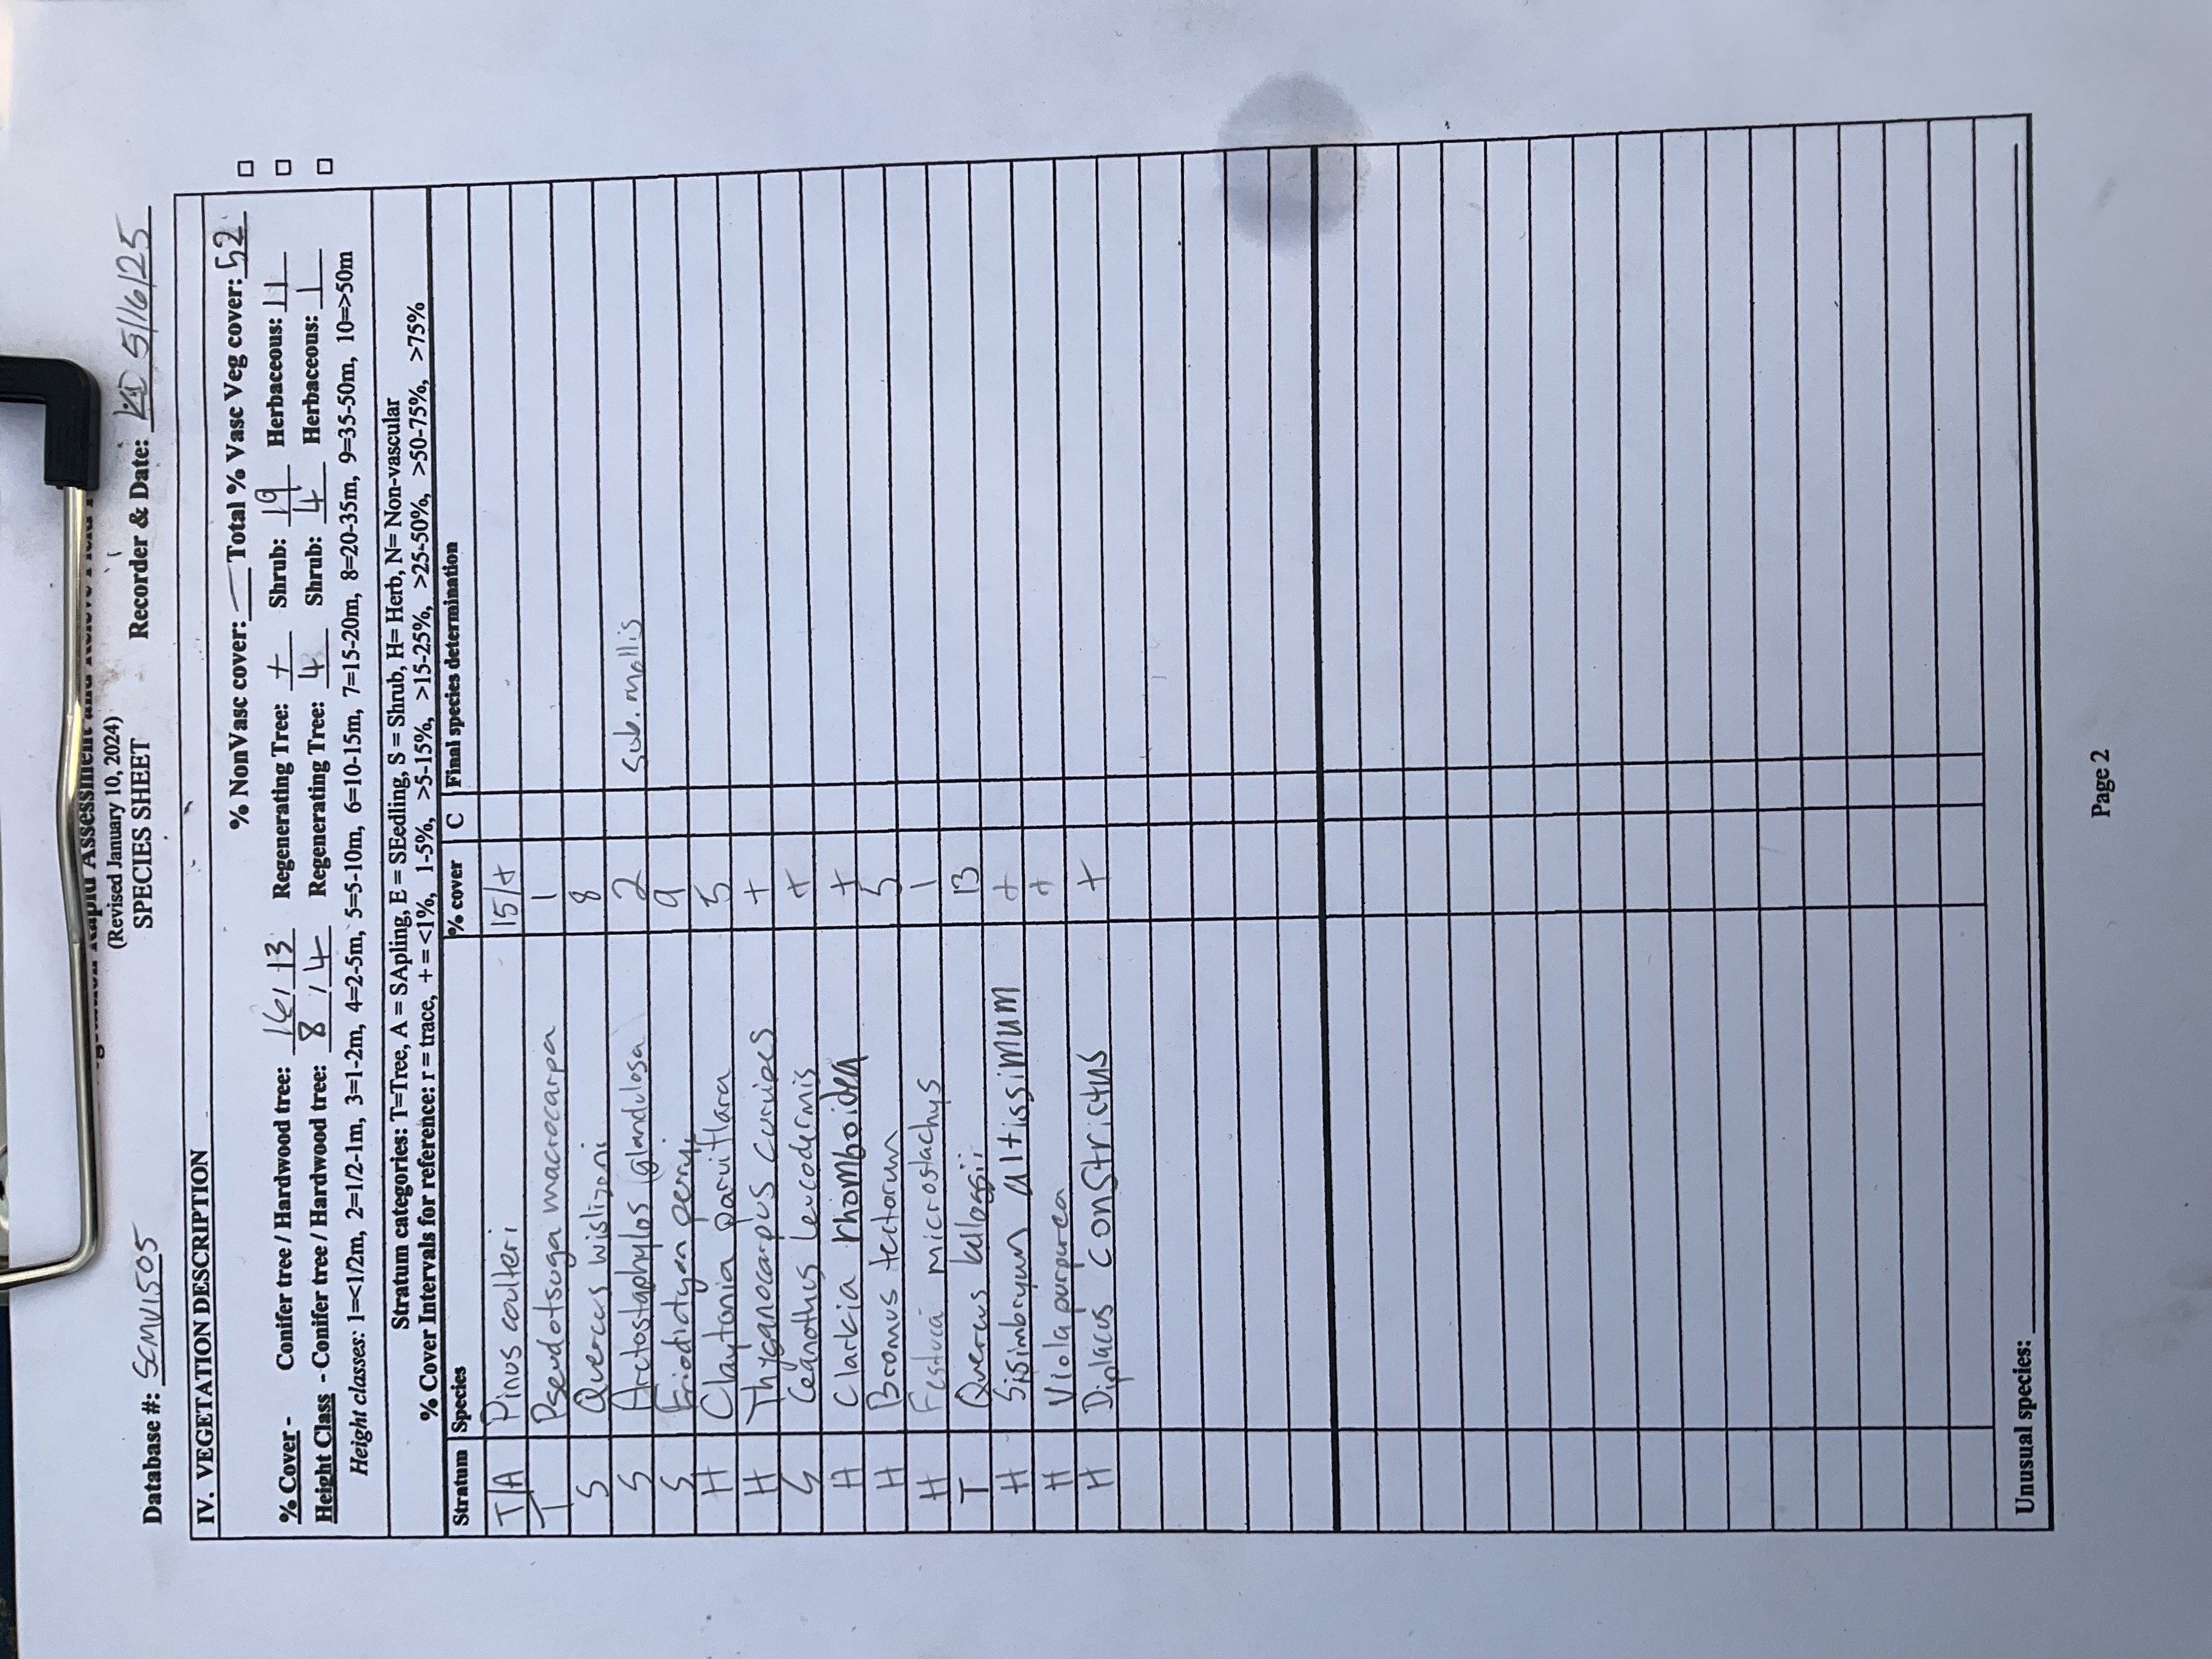 (Revised January 10, 2024)
SPECIES SHEET
Database #: SCMV1505 Recorder & Date: KD 5/16/25
IV. VEGETATION DESCRIPTION
% NonVasc cover: — Total % Vasc Veg cover: 52 □
% Cover - Conifer tree / Hardwood tree: 16/13 Regenerating Tree: + Shrub: 19 Herbaceous: 11 □
Height Class - Conifer tree / Hardwood tree: 8/4 Regenerating Tree: 4 Shrub: 4 Herbaceous: 1 □
Height classes: 1=<1/2m, 2=1/2-1m, 3=1-2m, 4=2-5m, 5=5-10m, 6=10-15m, 7=15-20m, 8=20-35m, 9=35-50m, 10=>50m
Stratum categories: T=Tree, A = SApling, E = SEedling, S = Shrub, H= Herb, N= Non-vascular
% Cover Intervals for reference: r = trace, + = <1%, 1-5%, >5-15%, >15-25%, >25-50%, >50-75%, >75%
Stratum Species % cover C Final species determination
T/A Pinus coulteri 15/+
T Pseudotsuga macrocarpa 1
S Quercus wislizeni 8
S Arctostaphylos glandulosa 2 sub. mollis
S Eriodictyon perry 9
H Claytonia parviflora 5
H Thysanocarpus curvipes +
S Ceanothus leucodermis +
H Clarkia rhomboidea +
H Bromus tectorum 5
H Festuca microstachys 1
T Quercus kelloggii 13
H Sisimbryum altissimum +
H Viola purpurea +
H Diplacus constrictus +
Unusual species:
Page 2